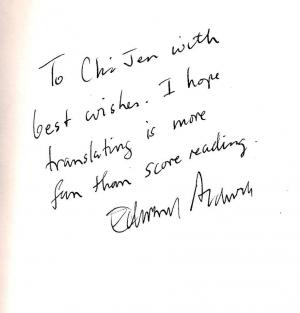 To Chi-Jen with
best wishes. I hope
translating is more
fun than score reading.
Edward